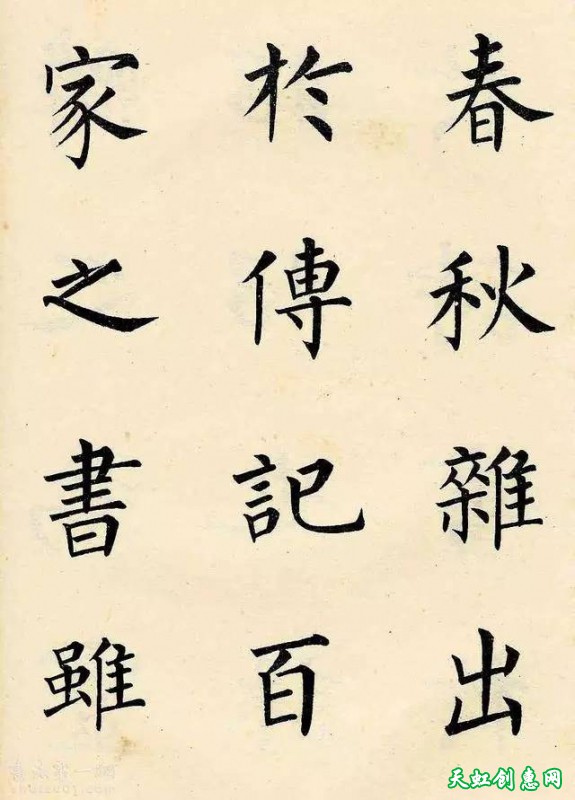 春秋雜出
於傳記百
家之書雖
天虹创惠网